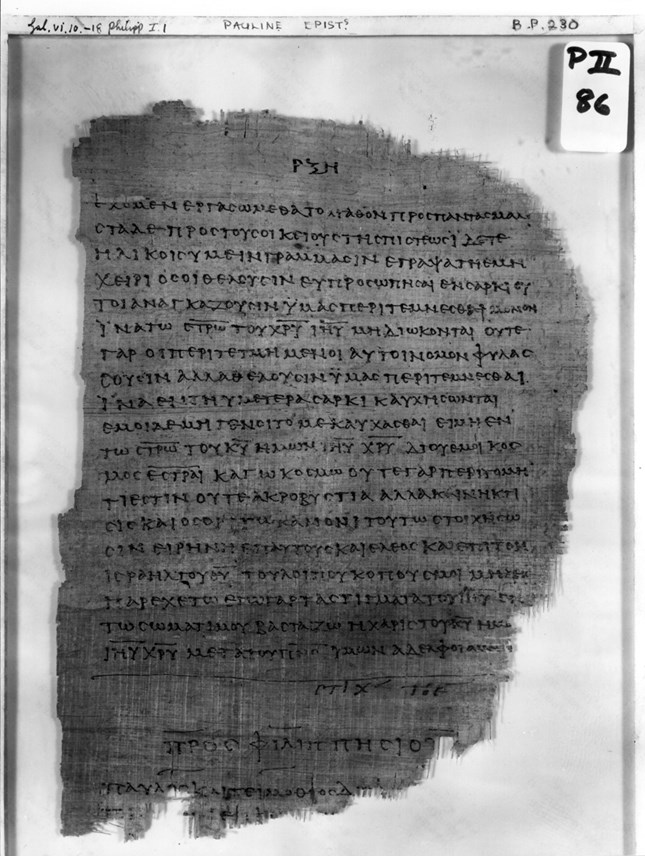 Gal. vi. 10.-18 Philipp I. 1 PAULINE EPISTS B.P. 230
P II
86
ΡΞΗ
ΕΧΟΜΕΝ ΕΡΓΑΣΩΜΕΘΑ ΤΟ ΑΓΑΘΟΝ ΠΡΟΣ ΠΑΝΤΑΣ ΜΑΛΙ
ΣΤΑ ΔΕ ΠΡΟΣ ΤΟΥΣ ΟΙΚΕΙΟΥΣ ΤΗΣ ΠΙΣΤΕΩΣ ΪΔΕΤΕ
ΗΛΙΚΟΙΣ ΥΜΕΙΝ ΓΡΑΜΜΑΣΙΝ ΕΓΡΑΨΑ ΤΗ ΕΜΗ
ΧΕΙΡΙ ΟΣΟΙ ΘΕΛΟΥΣΙΝ ΕΥΠΡΟΣΩΠΗΣΑΙ ΕΝ ΣΑΡΚΙ ΟΥ
ΤΟΙ ΑΝΑΓΚΑΖΟΥΣΙΝ ΫΜΑΣ ΠΕΡΙΤΕΜΝΕΣΘΑΙ ΜΟΝΟΝ
ΪΝΑ ΤΩ ΣΤΡΩ ΤΟΥ ΧΡΥ ΙΗΥ ΜΗ ΔΙΩΚΟΝΤΑΙ ΟΥΤΕ
ΓΑΡ ΟΙ ΠΕΡΙΤΕΤΜΗΜΕΝΟΙ ΑΥΤΟΙ ΝΟΜΟΝ ΦΥΛΑΣ
ΣΟΥΣΙΝ ΑΛΛΑ ΘΕΛΟΥΣΙΝ ΫΜΑΣ ΠΕΡΙΤΕΜΝΕΣΘΑΙ
ΪΝΑ ΕΝ ΤΗ ΥΜΕΤΕΡΑ ΣΑΡΚΙ ΚΑΥΧΗΣΩΝΤΑΙ
ΕΜΟΙ ΔΕ ΜΗ ΓΕΝΟΙΤΟ ΜΕ ΚΑΥΧΑΣΘΑΙ ΕΙ ΜΗ ΕΝ
ΤΩ ΣΤΡΩ ΤΟΥ ΚΥ ΗΜΩΝ ΙΗΥ ΧΡΥ ΔΙ ΟΥ ΕΜΟΙ ΚΟΣ
ΜΟΣ ΕΣΤΡΑΙ ΚΑΓΩ ΚΟΣΜΩ ΟΥΤΕ ΓΑΡ ΠΕΡΙΤΟΜΗ
ΤΙ ΕΣΤΙΝ ΟΥΤΕ ΑΚΡΟΒΥΣΤΙΑ ΑΛΛΑ ΚΑΙΝΗ ΚΤΙ
ΣΙΣ ΚΑΙ ΟΣΟΙ ΤΩ ΚΑΝΟΝΙ ΤΟΥΤΩ ΣΤΟΙΧΗΣΩ
ΣΙΝ ΕΙΡΗΝΗ ΕΠ ΑΥΤΟΥΣ ΚΑΙ ΕΛΕΟΣ ΚΑΙ ΕΠΙ ΤΟΝ
ΙΣΡΑΗΛ ΤΟΥ ΘΥ ΤΟΥ ΛΟΙΠΟΥ ΚΟΠΟΥΣ ΜΟΙ
ΠΑΡΕΧΕΤΩ ΕΓΩ ΓΑΡ ΤΑ ΣΤΙΓΜΑΤΑ ΤΟΥ ΙΗΥ
ΤΩ ΣΩΜΑΤΙ ΜΟΥ ΒΑΣΤΑΖΩ Η ΧΑΡΙΣ ΤΟΥ ΚΥ
ΙΗΥ ΧΡΥ ΜΕΤΑ ΤΟΥ ΠΝΣ ΫΜΩΝ ΑΔΕΛΦΟΙ
ΣΤΙΧ ΤΟΕ
ΠΡΟΣ ΦΙΛΙΠΠΗΣΙΟΥΣ
ΠΑΥΛΟΣ ΚΑΙ ΤΕΙΜΟΘΕΟΣ Δ